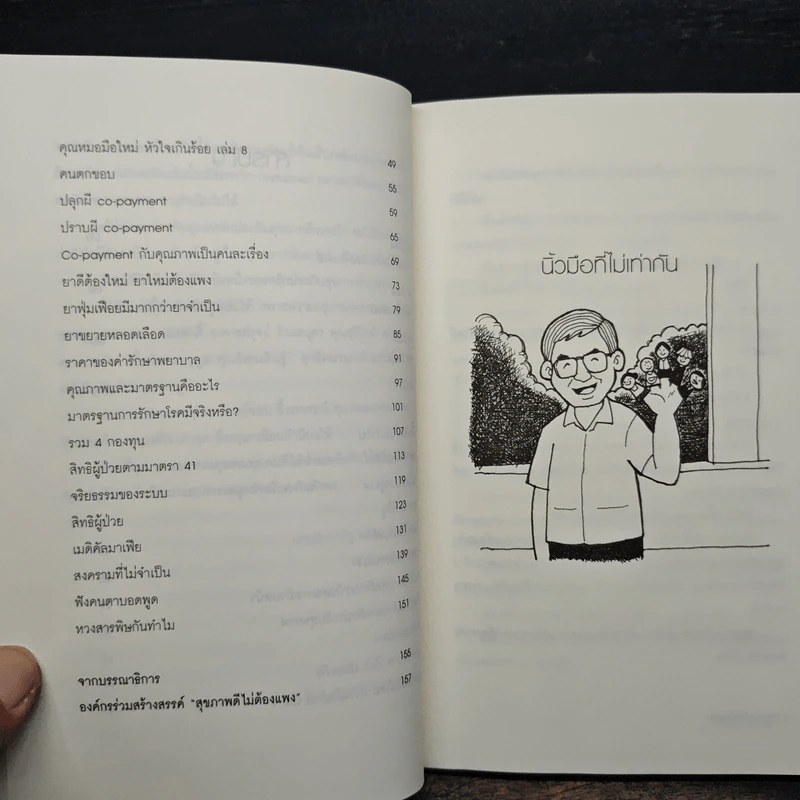 คุณหมอมือใหม่ หัวใจเกินร้อย เล่ม 8 49
คนตกขอบ 55
ปลุกผี co-payment 59
ปราบผี co-payment 65
Co-payment กับคุณภาพเป็นคนละเรื่อง 69
ยาดีต้องใหม่ ยาใหม่ต้องแพง 73
ยาฟุ่มเฟือยมีมากกว่ายาจำเป็น 79
ยาขยายหลอดเลือด 85
ราคาของค่ารักษาพยาบาล 91
คุณภาพและมาตรฐานคืออะไร 97
มาตรฐานการรักษาโรคมีจริงหรือ? 101
รวม 4 กองทุน 107
สิทธิผู้ป่วยตามมาตรา 41 113
จริยธรรมของระบบ 119
สิทธิผู้ป่วย 123
เมดิคัลมาเฟีย 131
สงครามที่ไม่จำเป็น 139
ฟังคนตาบอดพูด 145
หวงสารพิษกันทำไม 151
จากบรรณาธิการ 155
องค์กรร่วมสร้างสรรค์ "สุขภาพดีไม่ต้องแพง" 157
นิ้วมือที่ไม่เท่ากัน